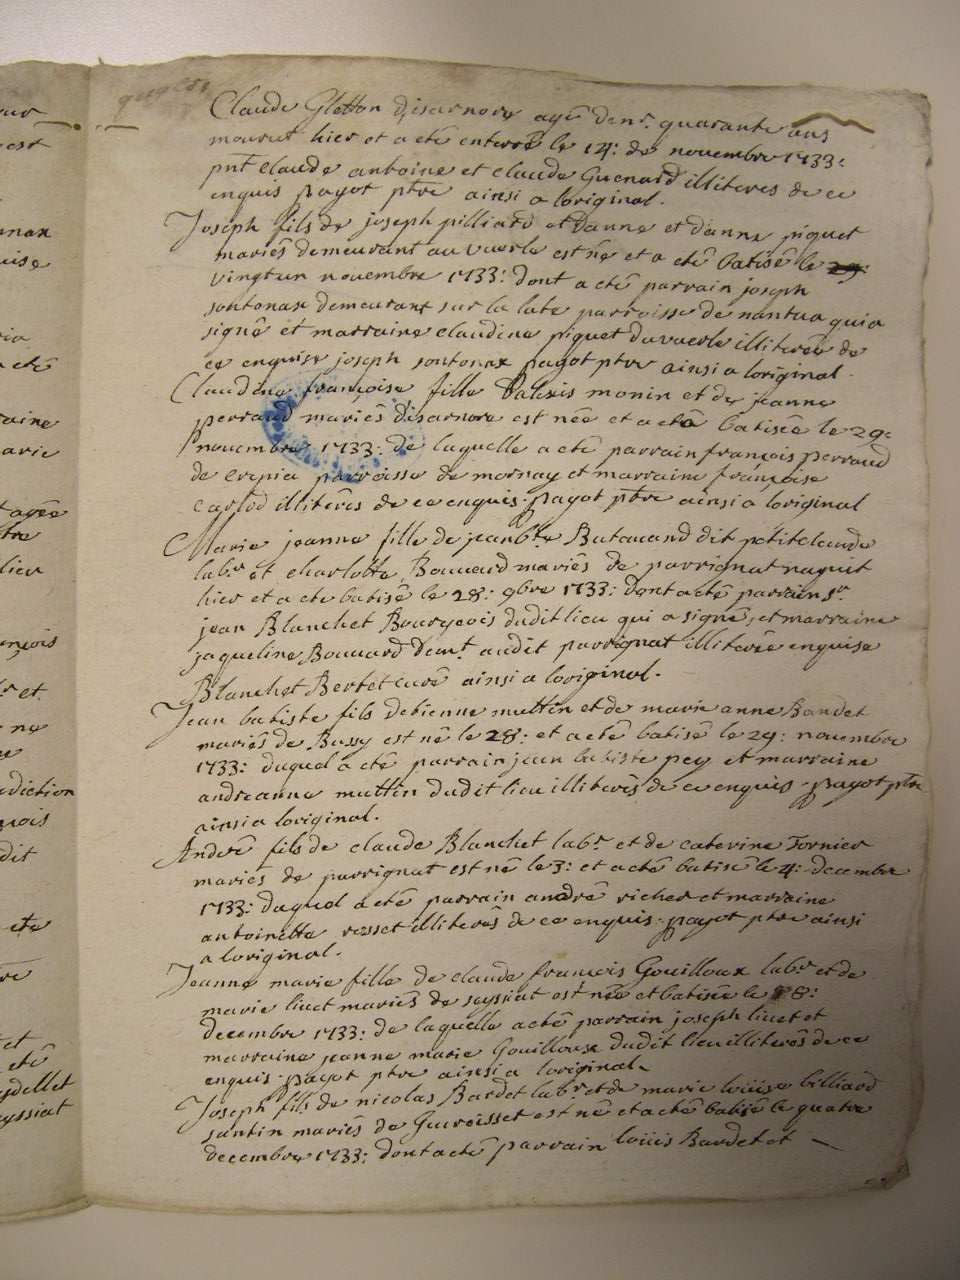 Claude Gletton disarnore agé denr. quarante ans
mourut hier et a eté enterré le 14: de novembre 1733:
pnt claude antoine et claude Guenard illiteres de ce
enquis payot ptre ainsi a loriginal.
Joseph fils de joseph pilliard et danne et danne piguet
mariés demeurant au vuerle est né et a eté batisé le 29:
vingt un novembre 1733: dont a eté parrain joseph
sontonax demeurant sur la late parroisse de nantua qui a
signé et marraine claudine piguet du vuerle illiterée de
ce enquise joseph sontonax payot ptre ainsi a loriginal.
Claudine françoise fille dalexis monin et de jeanne
perraud mariés disarnore est née et a eté batisée le 29:
novembre 1733: de laquelle a eté parrain françois perraud
de crepia parroisse de mornay et marraine françoise
carlod illiterés de ce enquis. payot ptre ainsi a loriginal
Marie jeanne fille de jean bte Butavand dit petitclaude
labr. et charlotte Bouvard mariés de parrignat naquit
hier et a eté batisé le 28: 9bre 1733: dont a eté parrain sr.
jean Blanchet Bourgeois dudit lieu qui a signé, et marraine
jaqueline Bouvard demt. audit parrignat illiterée enquise
Blanchet Bertet curé ainsi a loriginal.
Jean batiste fils detienne muttin et de marie anne Bandet
mariés de Bussy est né le 28: et a eté batisé le 29: novembre
1733: duquel a eté parrain jean batiste pey et marraine
andreanne muttin dudit lieu illiterés de ce enquis. payot ptre
ainsi a loriginal.
André fils de claude Blanchet labr. et de caterine Fornier
mariés de parrignat est né le 3: et a eté batisé le 4: decembre
1733: duquel a eté parrain andré richer et marraine
antoinette rosset illiterés de ce enquis. payot ptre ainsi
a loriginal.
Jeanne marie fille de claude françois Gouilloux labr. et de
marie livet mariés de seyssiat est née et batisée le 8:
decembre 1733: de laquelle a eté parrain joseph livet et
marraine jeanne marie Gouilloux dudit lieu illiterés de ce
enquis. payot ptre ainsi a loriginal.
Joseph fils de nicolas Bardet labr. et de marie loüise billiard
santin mariés de Guiroisset est né et a eté batisé le quatre
decembre 1733: dont a eté parrain loüis Bardet et